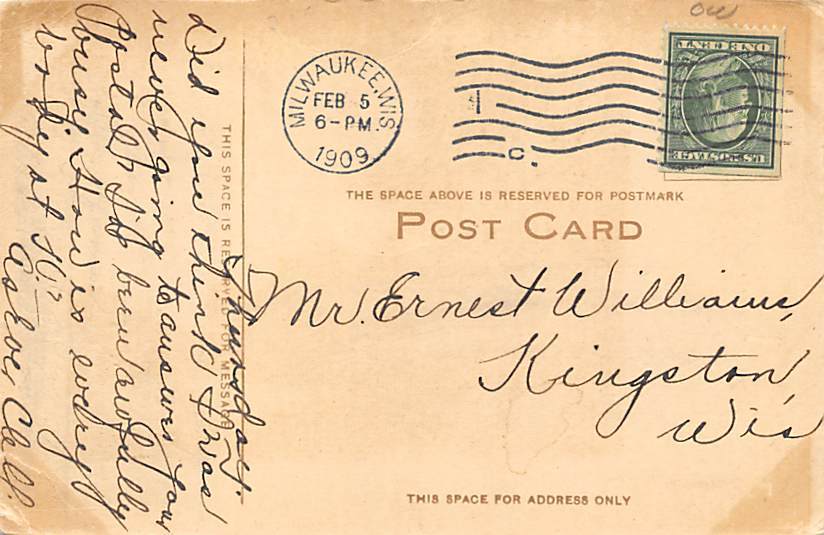 Thursday.
Did you think I was
never going to answer your
Postal? I'd been awfully
busy. How is every
body at K?
As Ever
THIS SPACE IS RESERVED FOR MESSAGE
MILWAUKEE, WIS.
FEB 5
6-PM
1909
1
C.
ONE CENT
U.S. POSTAGE
THE SPACE ABOVE IS RESERVED FOR POSTMARK
POST CARD
Mr. Ernest Williams,
Kingston,
Wis
THIS SPACE FOR ADDRESS ONLY